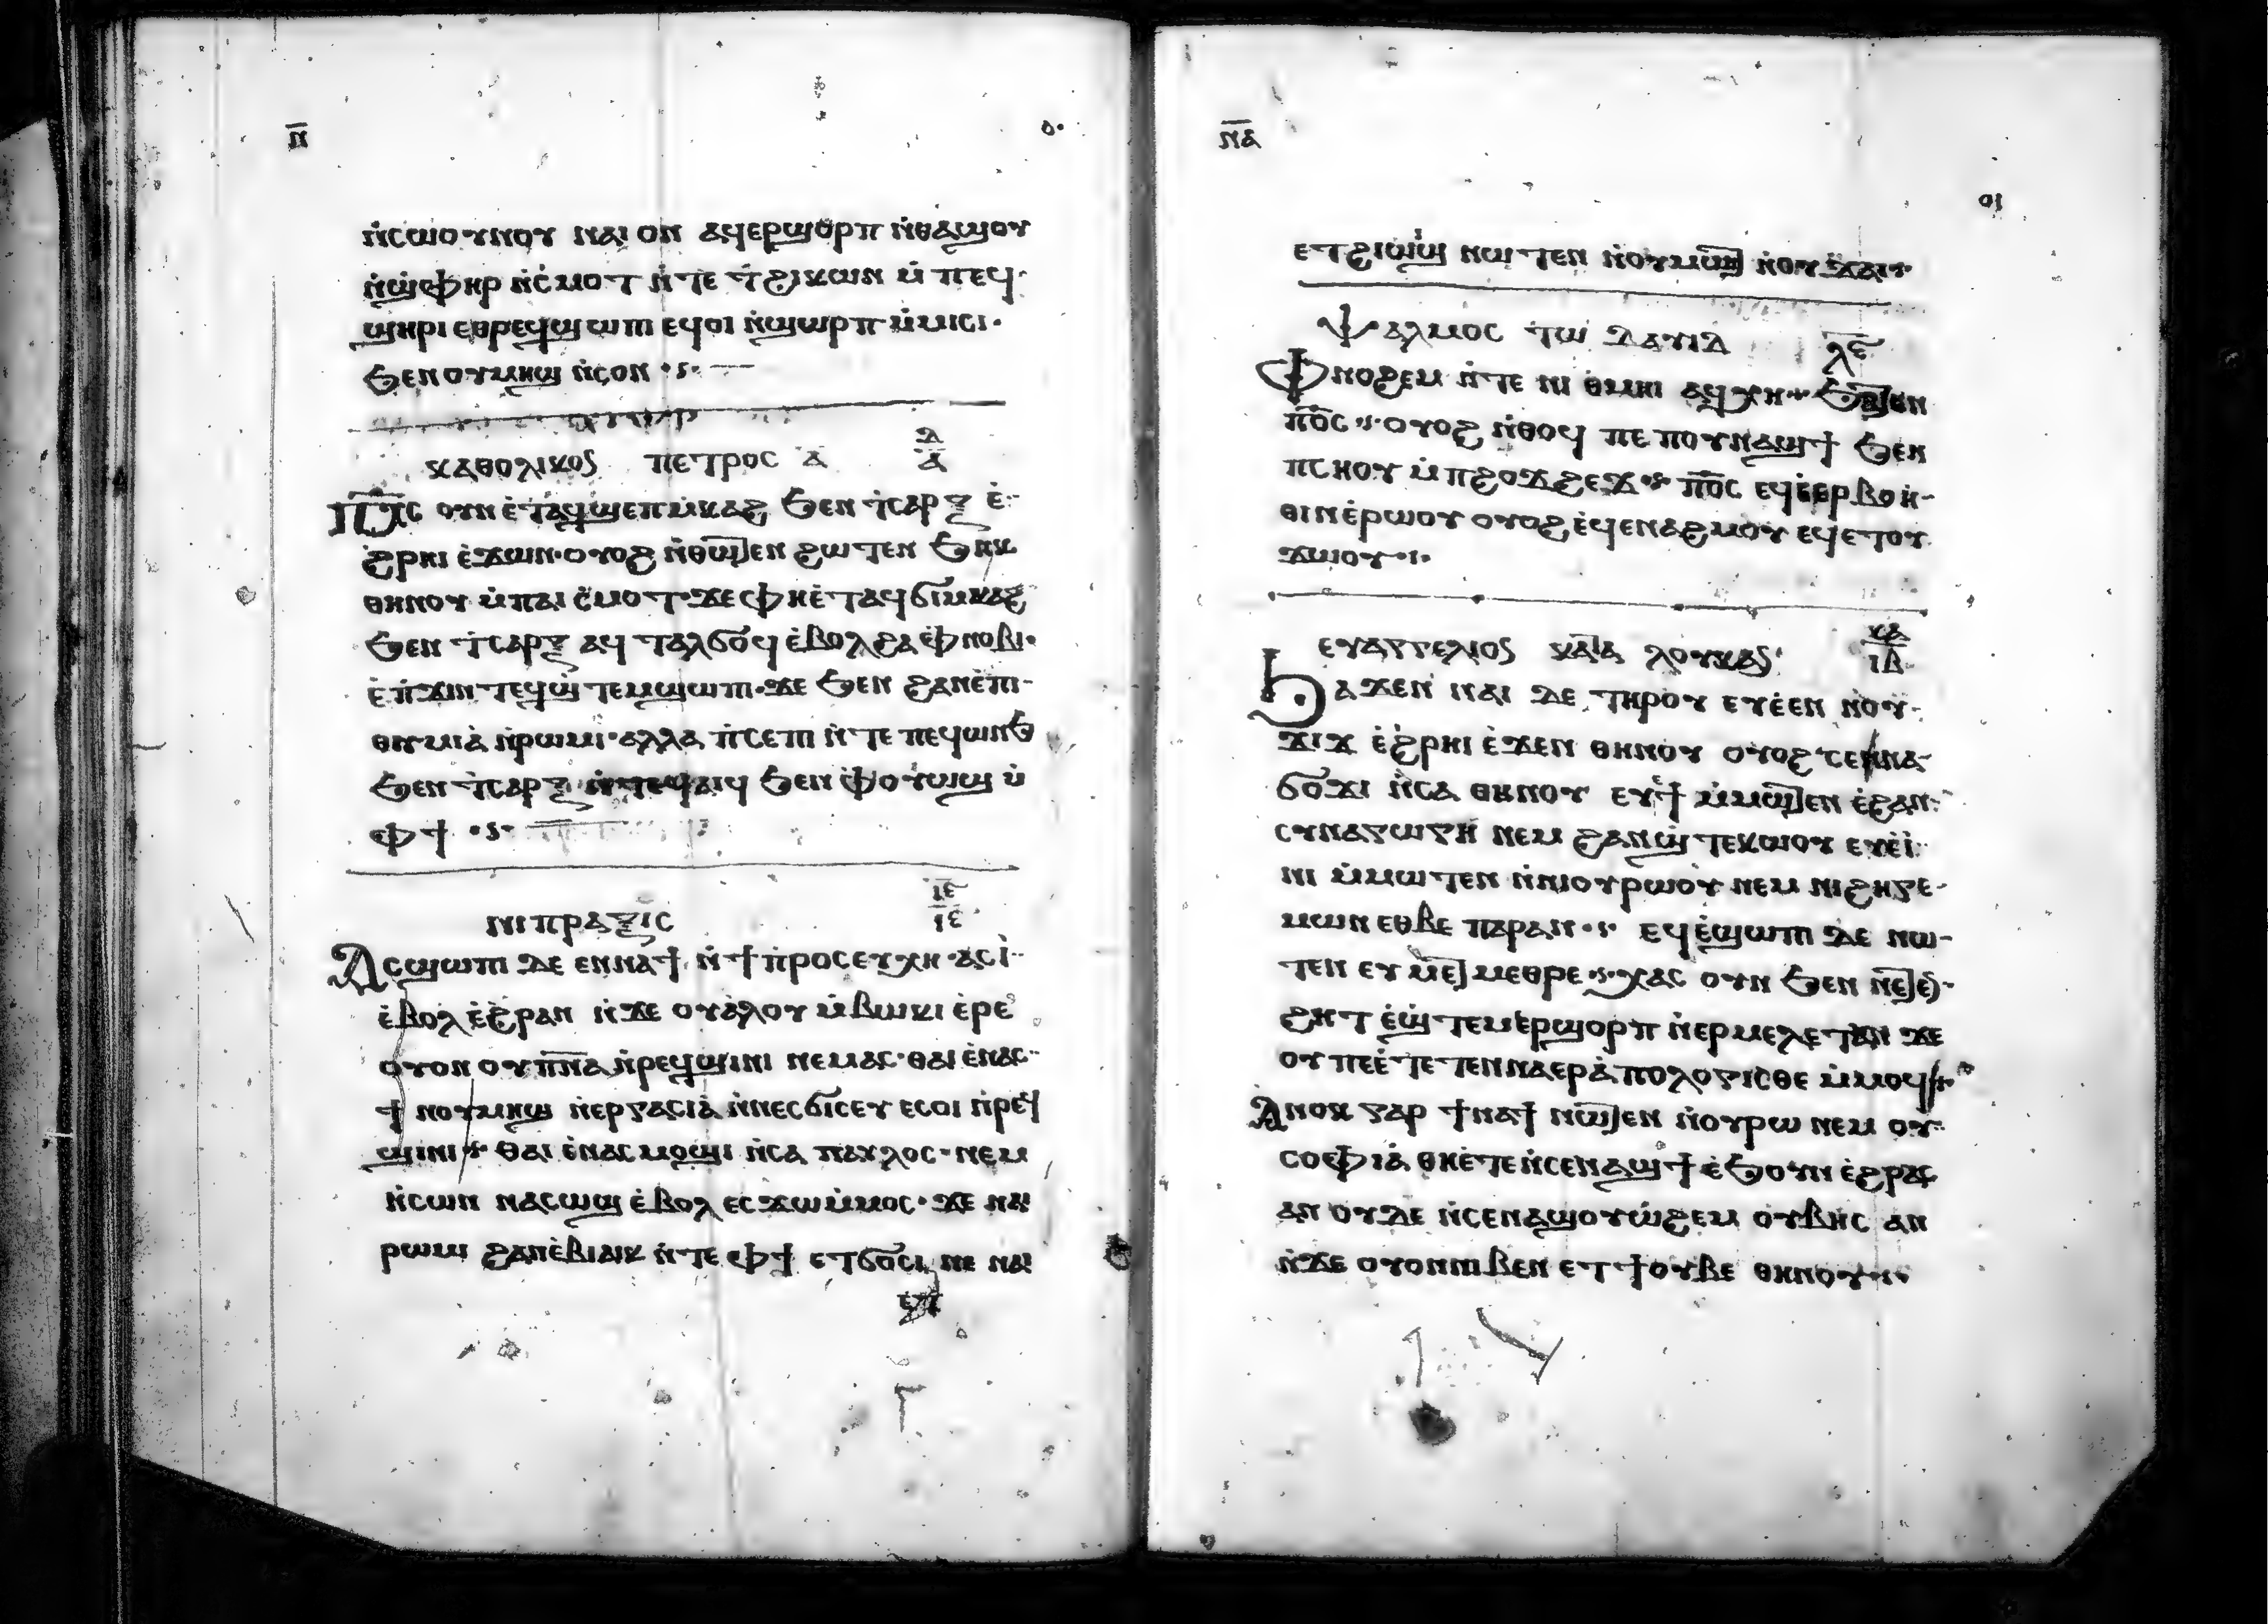 ⲡ̅
ⲛ̀ⲥⲱⲟⲩⲛⲟⲩ ⲛⲁⲓ ⲟⲛ ⲁϥⲉⲣϣⲟⲣⲡ ⲛ̀ⲑⲁϣⲟⲩ
ⲛ̀ϣ̀ⲫⲏⲣ ⲛ̀ⲥ̀ⲙⲟⲧ ⲛ̀ⲧⲉ ϯϩⲓⲕⲱⲛ ⲙ̀ ⲡⲉϥ
ϣⲏⲣⲓ ⲉⲑⲣⲉϥϣⲱⲡⲓ ⲉϥⲟⲓ ⲛ̀ϣⲱⲣⲡ ⲙ̀ⲙⲓⲥⲓ·
ϧⲉⲛ ⲟⲩⲙⲏϣ ⲛ̀ⲥⲟⲛ
ⲕⲁⲑⲟⲗⲓⲕⲟⲥ ⲡⲉⲧⲣⲟⲥ ⲁ̅ ⲇ̅
ⲁ̅
ⲡⲭ̅ⲥ ⲟⲩⲛ ⲉ̀ⲧⲁϥϣⲉⲡⲙ̀ⲕⲁϩ ϧⲉⲛ ⲧ̀ⲥⲁⲣⲝ ⲉ̀
ϩⲣⲏⲓ ⲉ̀ϫⲱⲛ· ⲟⲩⲟϩ ⲛ̀ⲑⲱⲧⲉⲛ ϩⲱⲧⲉⲛ ϧⲏⲕ
ⲑⲏⲛⲟⲩ ⲙ̀ⲡⲁⲓ ⲥ̀ⲙⲟⲧ· ϫⲉ ⲫⲏⲉ̀ⲧⲁϥϭⲓⲙⲕⲁϩ
ϧⲉⲛ ⲧ̀ⲥⲁⲣⲝ ⲁϥ ⲧⲁⲗϭⲟϥ ⲉ̀ⲃⲟⲗϩⲁ ⲫ̀ⲛⲟⲃⲓ·
ⲉ̀ⲡ̀ϫⲓⲛⲧⲉϥϣ̀ⲧⲉⲙϣⲱⲡⲓ· ϫⲉ ϧⲉⲛ ϩⲁⲛⲉ̀ⲡⲓ
ⲑⲩⲙⲓⲁ̀ ⲛ̀ⲣⲱⲙⲓ· ⲁⲗⲗⲁ ⲡ̀ⲥⲉⲡⲓ ⲛ̀ⲧⲉ ⲡⲉϥⲱⲛϧ
ϧⲉⲛ ⲧ̀ⲥⲁⲣⲝ ⲛ̀ⲧⲉϥⲁⲓϥ ϧⲉⲛ ⲫ̀ⲟⲩⲱϣ ⲙ̀
ⲫϯ
ⲛⲓⲡⲣⲁⲝⲓⲥ ⲓ̅ⲉ̅
ⲓ̅ⲉ̅
ⲁⲥϣⲱⲡⲓ ⲇⲉ ⲉⲛⲛⲁϯ ⲛ̀ϯⲡⲣⲟⲥⲉⲩⲭⲏ· ⲁⲥⲓ̀
ⲉ̀ⲃⲟⲗ ⲉ̀ϩ̀ⲣⲁⲛ ⲛ̀ϫⲉ ⲟⲩⲁ̀ⲗⲟⲩ ⲙ̀ⲃⲱⲕⲓ ⲉ̀ⲣⲉ
ⲟⲩⲟⲛ ⲟⲩⲡ̅ⲛ̅ⲁ̅ ⲛ̀ⲣⲉϥϣⲓⲛⲓ ⲛⲉⲙⲁⲥ· ⲑⲁⲓ ⲉ̀ⲛⲁⲥ
ϯ ⲛⲟⲩⲙⲏϣ ⲛ̀ⲉⲣⲅⲁⲥⲓⲁ̀ ⲛ̀ⲛⲉⲥϭⲓⲥⲉⲩ ⲉⲥⲟⲓ ⲛ̀ⲣⲉϥ
ϣⲓⲛⲓ ⲑⲁⲓ ⲉ̀ⲛⲁⲥⲙⲟϣⲓ ⲛ̀ⲥⲁ ⲡⲁⲩⲗⲟⲥ· ⲛⲉⲙ
ⲛ̀ⲥⲱⲛ ⲛⲁⲥⲱϣ ⲉ̀ⲃⲟⲗ ⲉⲥϫⲱ ⲙ̀ⲙⲟⲥ· ϫⲉ ⲛⲁⲓ
ⲣⲱⲙⲓ ϩⲁⲛⲉ̀ⲃⲓⲁⲓⲕ ⲛ̀ⲧⲉ ⲫϯ ⲉⲧϭⲟⲥⲓ ⲛⲉ ⲛⲁⲓ
ⲛ̅ⲁ̅
ⲉⲧϩⲓⲱⲓϣ ⲛⲱⲧⲉⲛ ⲛ̀ⲟⲩⲙⲱⲓⲧ ⲛ̀ⲟⲩϫⲁⲓ
ⲯⲁⲗⲙⲟⲥ ⲧⲱ ⲇⲁⲩⲓⲇ ⲗ̅ⲉ̅
ⲫⲛⲟϩⲉⲙ ⲛ̀ⲧⲉ ⲛⲓ ⲑⲙⲏⲓ ⲁϥⲭⲏ ϧⲁⲧⲉⲛ
ⲡ̅ⲟ̅ⲥ ⲟⲩⲟϩ ⲛ̀ⲑⲟϥ ⲡⲉ ⲡⲟⲩⲛⲁϣϯ ϧⲉⲛ
ⲡⲥⲏⲟⲩ ⲙ̀ⲡϩⲟϫϩⲉϫ ⲡ̅ⲟ̅ⲥ ⲉϥⲉ̀ⲉⲣⲃⲟⲏ
ⲑⲓⲛ ⲉ̀ⲣⲱⲟⲩ ⲟⲩⲟϩ ⲉ̀ϥⲉⲛⲁϩⲙⲟⲩ ⲉϥⲉⲧⲟⲩ
ϫⲱⲟⲩ
ⲉⲩⲁⲅⲅⲉⲗⲓⲟⲥ ⲕⲁⲧⲁ ⲗⲟⲩⲕⲁⲥ ⲕ̅ⲁ̅
ⲓ̅ⲃ̅
ϧⲁϫⲉⲛ ⲛⲁⲓ ⲇⲉ ⲧⲏⲣⲟⲩ ⲉⲩⲉ̀ⲉⲛ ⲛⲟⲩ
ϫⲓϫ ⲉ̀ϩ̀ⲣⲏⲓ ⲉ̀ϫⲉⲛ ⲑⲏⲛⲟⲩ ⲟⲩⲟϩ ⲥⲉⲛⲛⲁ
ϭⲟϫⲓ ⲛ̀ⲥⲁ ⲑⲏⲛⲟⲩ ⲉⲩϯ ⲙ̀ⲙⲱⲧⲉⲛ ⲉ̀ϩⲁⲛ
ⲥⲩⲛⲁⲅⲱⲅⲏ ⲛⲉⲙ ϩⲁⲛϣ̀ⲧⲉⲕⲱⲟⲩ ⲉⲩⲉ̀ⲓ̀
ⲛⲓ ⲙ̀ⲙⲱⲧⲉⲛ ⲛ̀ⲛⲓⲟⲩⲣⲱⲟⲩ ⲛⲉⲙ ⲛⲓϩⲏⲅⲉ
ⲙⲱⲛ ⲉⲑⲃⲉ ⲡⲁⲣⲁⲛ ⲉϥⲉ̀ϣⲱⲡⲓ ⲇⲉ ⲛⲱ
ⲧⲉⲛ ⲉⲩ ⲙⲉⲧⲙⲉⲑⲣⲉ ⲭⲁⲥ ⲟⲩⲛ ϧⲉⲛ ⲛⲉⲧⲉⲛ
ϩⲏⲧ ⲉ̀ϣ̀ⲧⲉⲙⲉⲣϣⲟⲣⲡ ⲛ̀ⲉⲣⲙⲉⲗⲉⲧⲁⲛ ϫⲉ
ⲟⲩ ⲡⲉⲉ̀ⲧⲉⲧⲉⲛⲛⲁⲉⲣⲁ̀ⲡⲟⲗⲟⲅⲓⲥⲑⲉ ⲙ̀ⲙⲟϥ
ⲁⲛⲟⲕ ⲅⲁⲣ ϯⲛⲁϯ ⲛⲱⲧⲉⲛ ⲛ̀ⲟⲩⲣⲱ ⲛⲉⲙ ⲟⲩ
ⲥⲟⲫⲓⲁ̀ ⲑⲏⲉ̀ⲧⲉⲛ̀ⲥⲉⲛⲁϣϯ ⲉ̀ϧⲟⲩⲛ ⲉ̀ϩⲣⲁⲥ
ⲁⲛ ⲟⲩⲇⲉ ⲛ̀ⲥⲉⲛⲁϣⲟⲩⲱ̀ϩⲉⲙ ⲟⲩⲃⲏⲥ ⲁⲛ
ⲛ̀ϫⲉ ⲟⲩⲟⲛⲛⲓⲃⲉⲛ ⲉⲧϯⲟⲩⲃⲉ ⲑⲏⲛⲟⲩ